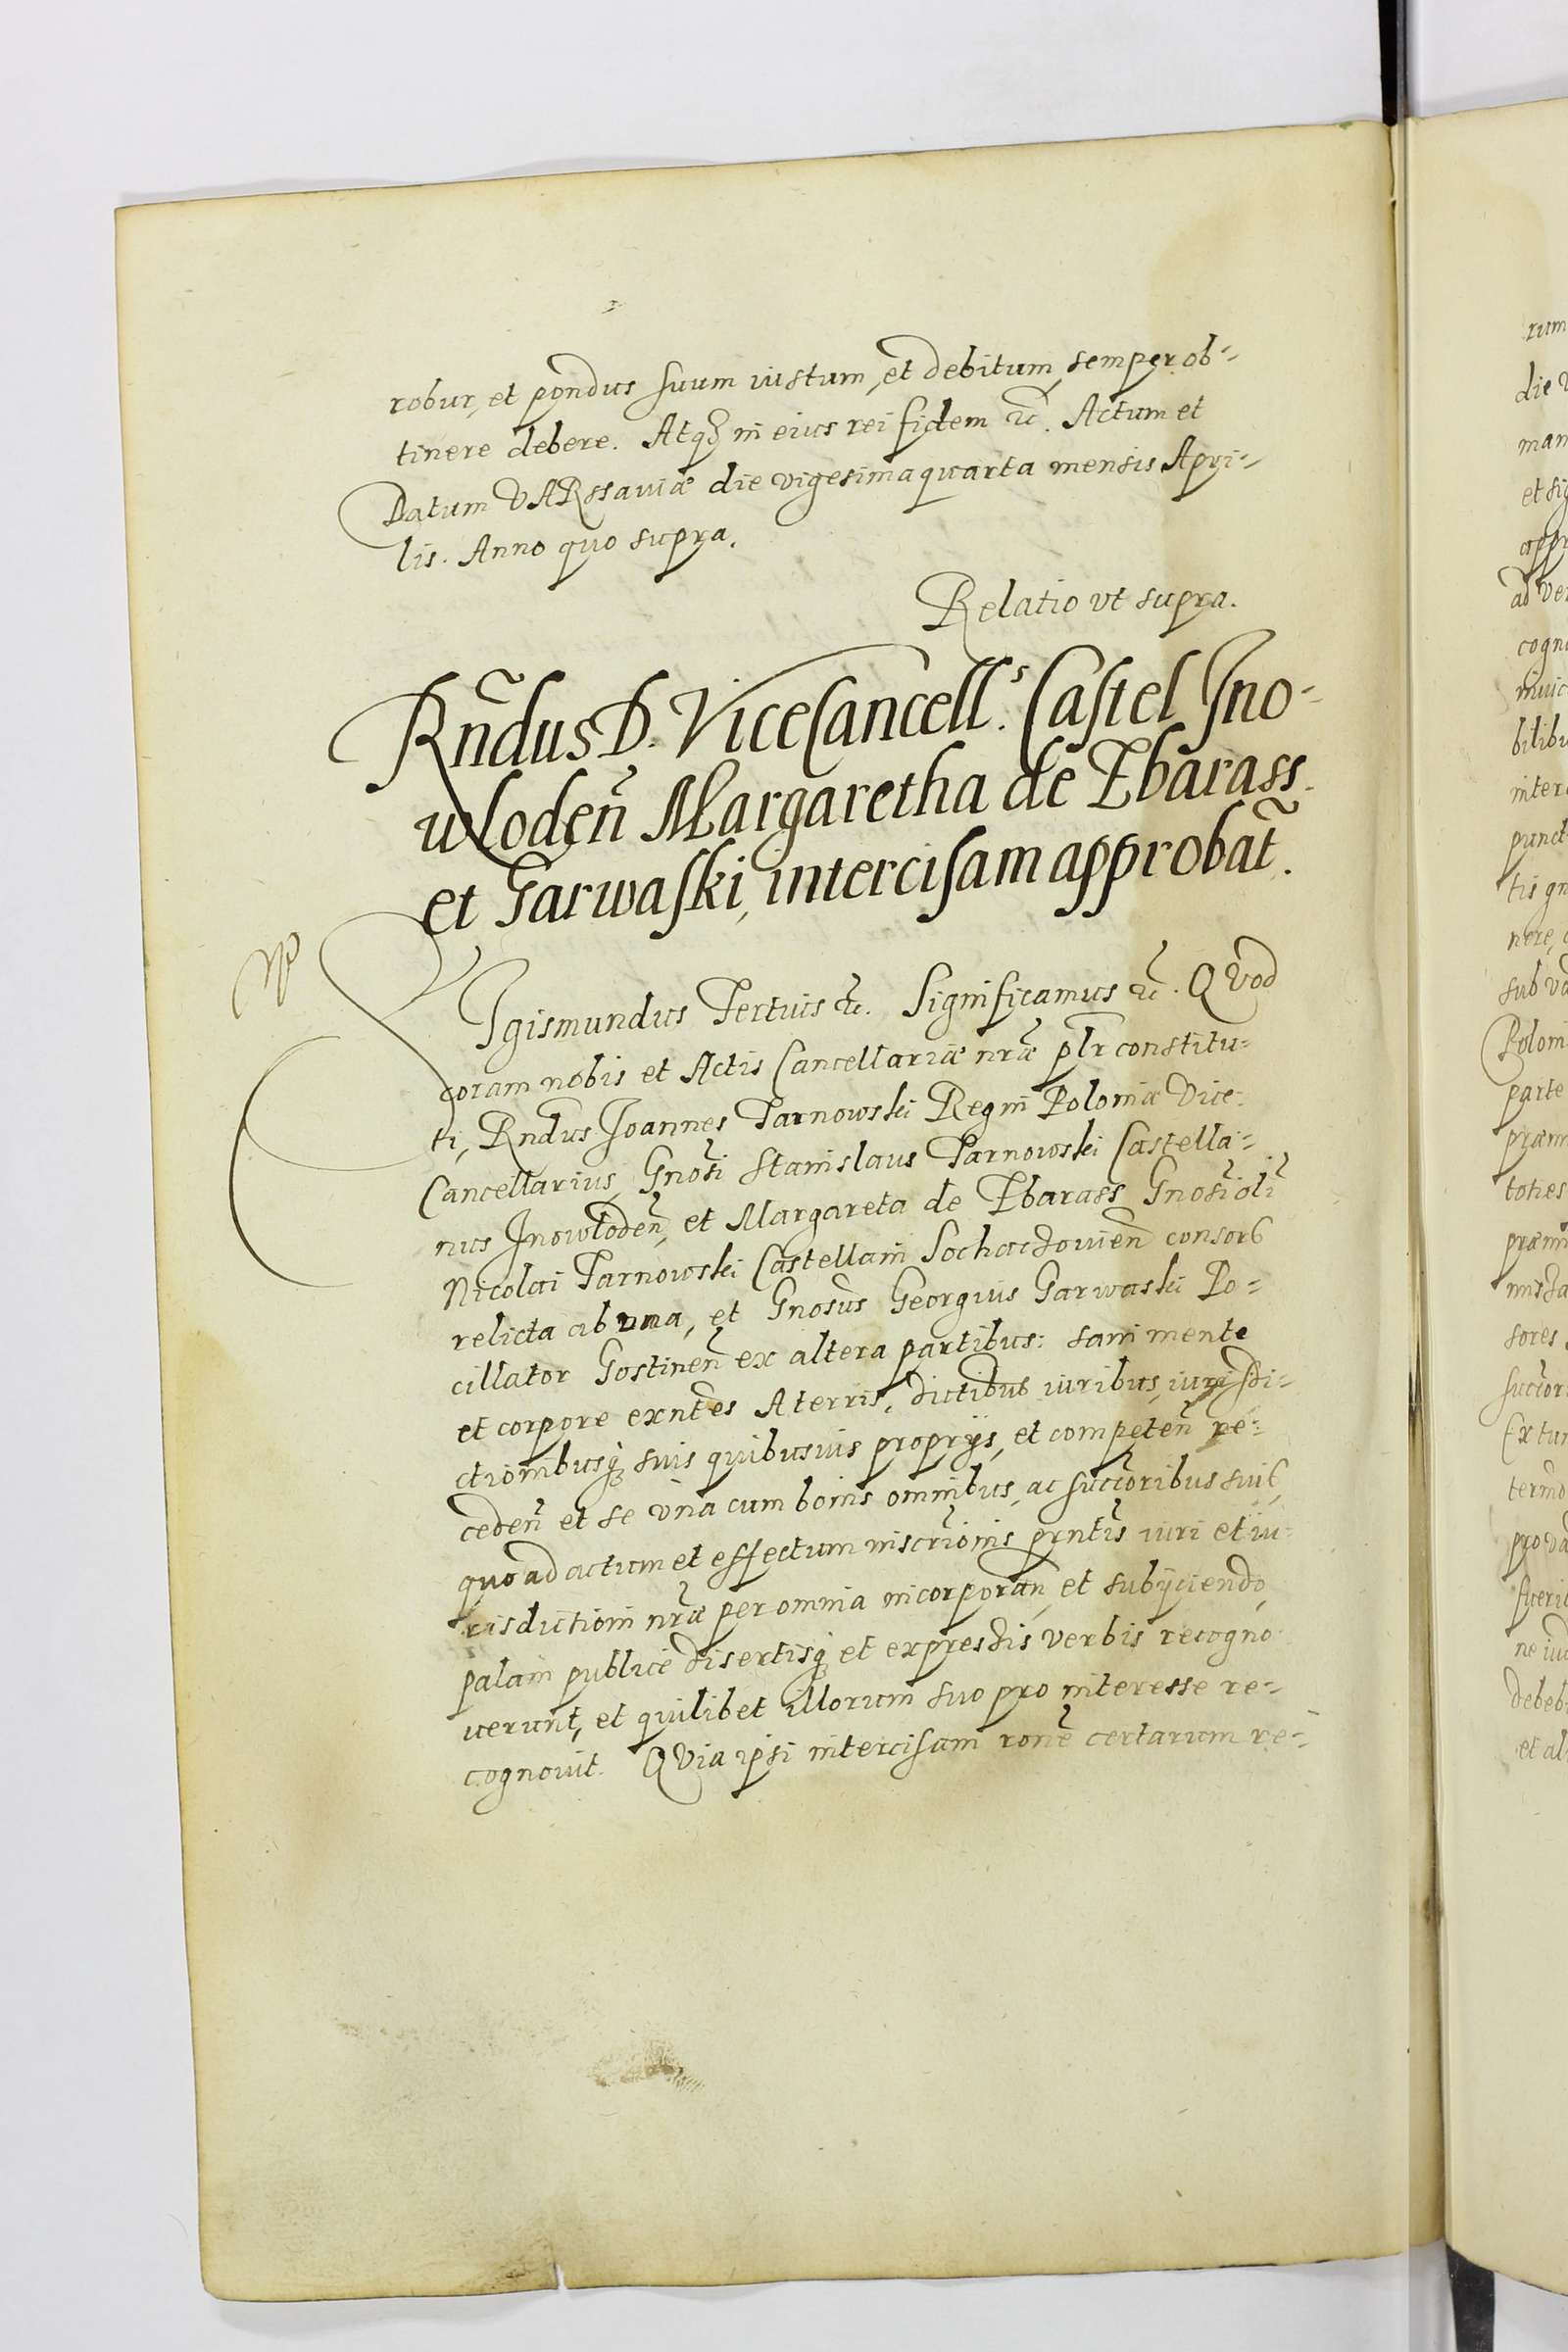 robur, et pondus suum iustum, et debitum, semper ob-
tinere debere. Atq₃ in eius rei fidem ꝛc̃. Actum et
Datum VARssaviæ die vigesima quarta mensis Apri-
lis. Anno quo supra.
Relatio vt supra.
Rñdus D. ViceCancell.ˢ Castel Ino-
wlodeñ Margaretha de Zbarass.
et Garwaski, intercisam approbat̃.
Sigismundus Tertius ꝛc. Significamus ꝛc̃. QVod
coram nobis et Actis Cancellariæ nr̃æ pl̃r constitu-
ti, Rñdus Joannes Tarnowski Regni Poloniæ Vice-
Cancellarius, Gnõsi Stanislaus Tarnowski Castella-
nus Jnowlodeñ, et Margareta de Zbarass Gnõsi oli͂
Nicolai Tarnowski Castellani Sochaczovień consors
relicta ab vna, et Gnõsus Georgius Garwaski Po-
cillator Gostineñ ex altera partibus: sani mente
et corpore exñtes A terris, dictibus iuribus, iurisdi-
ctionibusq₃ suis quibusuis proprijs, et competeñ re-
cedeñ et se vna cum bonis omnibus, ac succ̃oribus suis,
quo ad actum et effectum inscrĩonis prñtis iuri et iu-
risdictioni nr̃æ per omnia incorporañ, et subijciendo,
palam publice disertisq₃ et expressis verbis recogno-
uerunt, et quilibet illorum suo pro interesse re-
cognouit. QVia ipsi intercisam ronẽ certarum re-